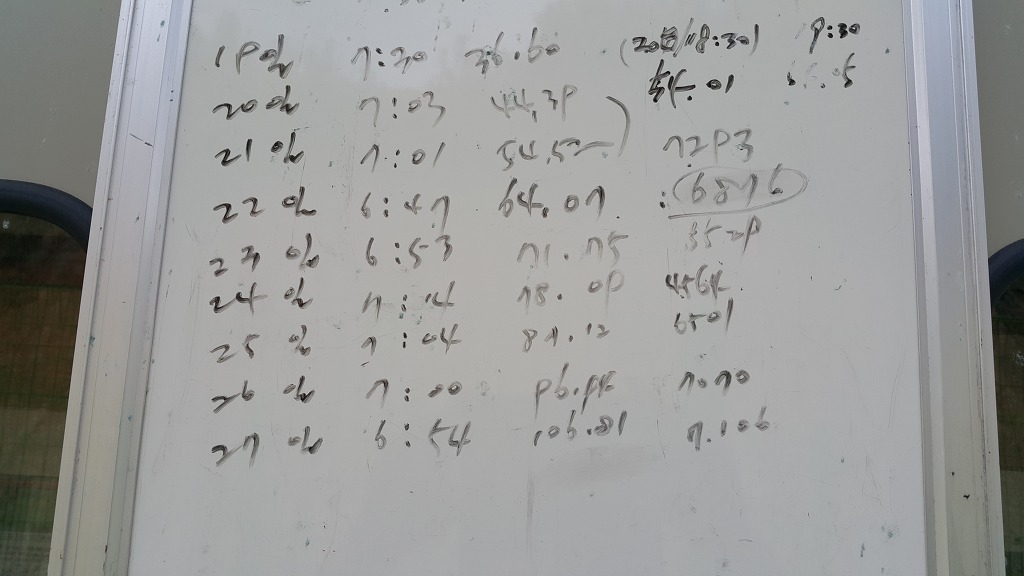 19일 7:30 36.60 (20일/18:30) 9:30
20일 7:03 44.39 54.01
21일 7:01 54.52 7293
22일 6:47 64.07 : 6876
23일 6:53 71.75 3529
24일 7:14 78.09 4564
25일 7:04 87.12 6501
26일 7:00 96.94 7.070
27일 6:54 106.81 7.106